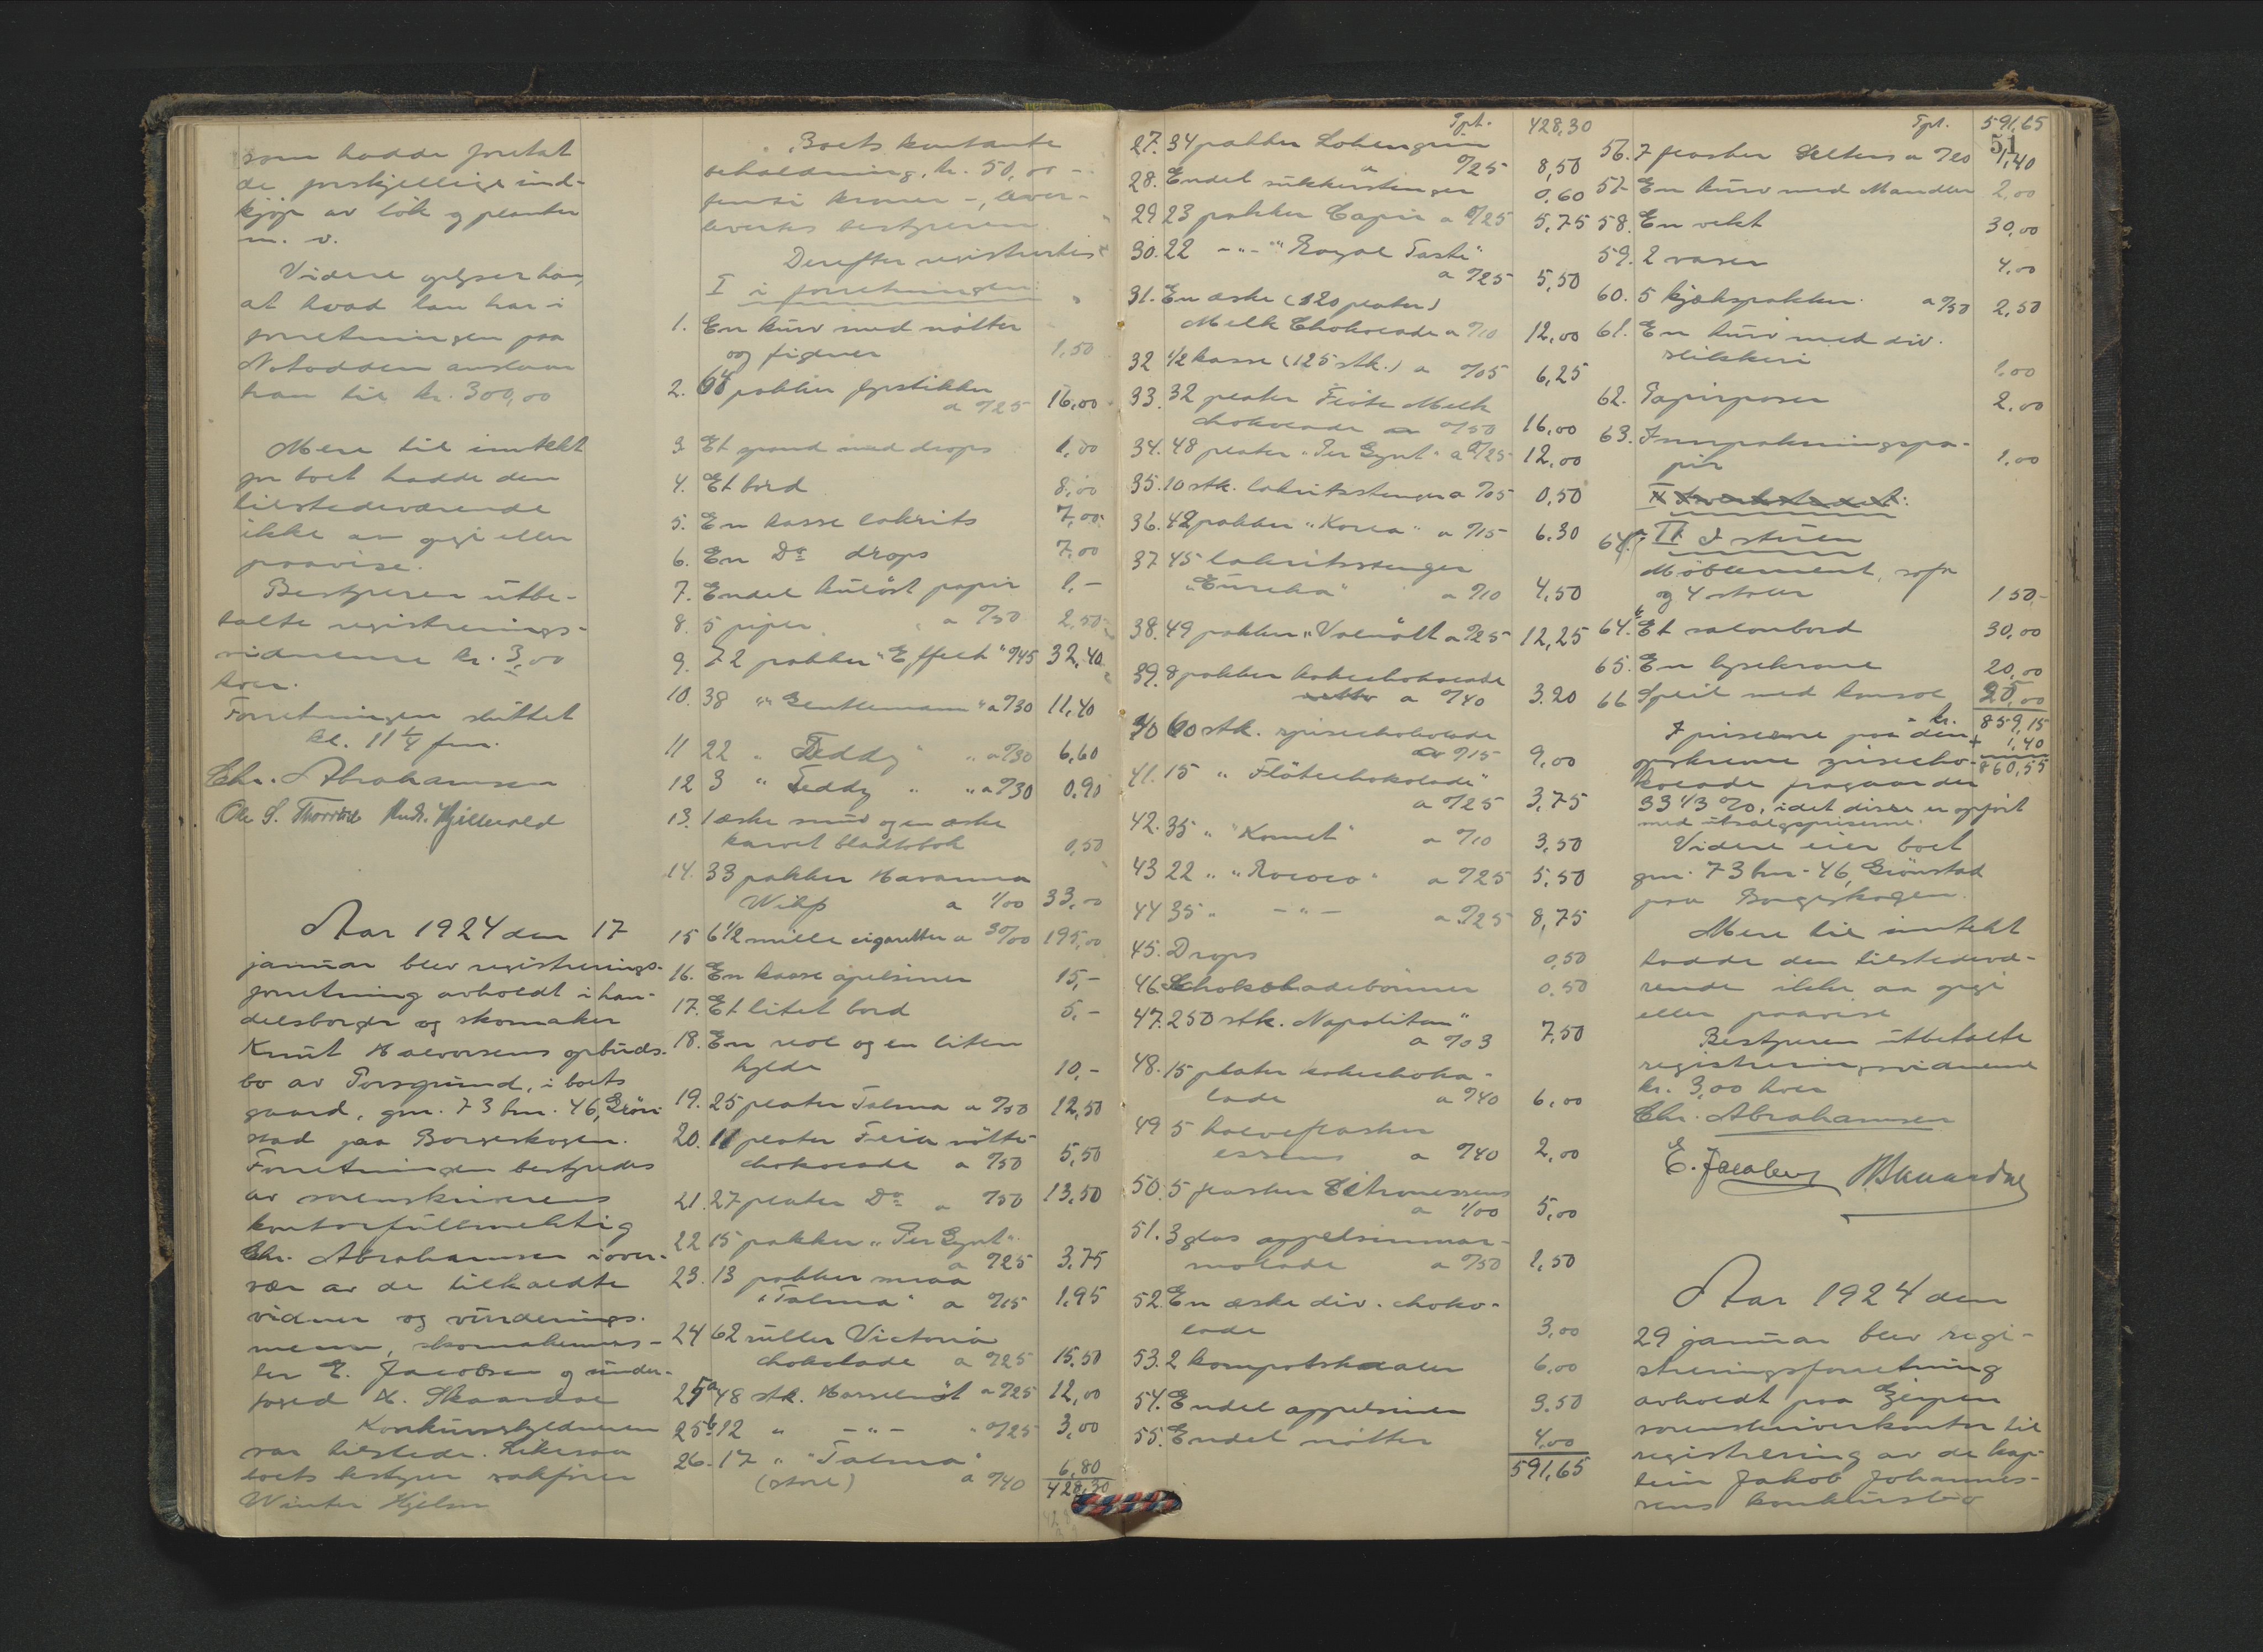 som hadde foretat
de forskjellige ind-
kjøp av løk og planter
m. v.
Videre oplyser han,
at hvad han har i
forretningen paa
Notodden anslaar
han til kr. 300,00
Mere til inntekt
for boet hadde den
tilstedeværende
ikke an opgi eller
paavise.
Bestyreren utbe-
talte registrerings-
vidnerne kr. 3,00
hver.
Forretningen sluttet
kl. 11 1/4 fm.
Chr. Abrahamsen
Ole S.
Aar 1924 den 17
januar blev registrerings-
forretning avholdt i han-
delsborger og skomaker
Knut Halvorsens opbuds-
bo av Porsgrund, i boets
gaard, gnr. 73 bnr. 46, Grøn-
stad paa Borgeskogen.
Forretningen bestyredes
av sorenskriverens
kontorfuldmektig
Chr. Abrahamsen i over-
vær av de tilkaldte
vidner og vurderings-
menn, skomakermes-
ter E. Jacobsen og under-
foged H. Skaardal
Konkursskyldneren
var tilstede. Likesaa
boets bestyrer sakfører
Winter Hjelm
Boets kontante
beholdning, kr. 50,00 -
femti kroner -, over-
leveres bestyreren.
Derefter registrertes
I i forretningen:
1. En kurv med nøtter
og figner 1,50
2. 64 pakker fyrstikker
a 0/25 16,00
3 Et spand med drops 1,00
4. Et bord 8,00
5. En kasse lakrits 7,00
6. En Do drops 7,00
7. Endel kulørt papir 1,-
8. 5 piper a 0/50 2,50
9. 72 pakker "Effekt" 0/45 32,40
10. 38 "" Gentlemann " a 0/30 11,40
11 22 " Teddy " " a 0/30 6,60
12 3 " Teddy " " a 0/30 0,90
13. 1 æske snus og en æske
karvet bladtobak 0,50
14. 33 pakker Havanna
Whip a 1/00 33,00
15 6 1/2 mille cigaretter a 30/00 195,00
16. En kasse apelsiner 15,-
17. Et litet bord 5,-
18. En reol og en liten
hylde 10,-
19. 25 plater Talma a 0/50 12,50
20. 11 plater Freia nøtte-
chokolade a 0/50 5,50
21. 27 plater Do a 0/50 13,50
22 15 pakker "Per Gynt"
a 0/25 3,75
23. 13 pakker smaa
"Talma" a 0/15 1,95
24 62 ruller Victoria
chokolade a 0/25 15,50
25a 48 stk. Hasselnøt a 0/25 12,00
25b 12 " - " - " 0/25 3,00
26. 17 " "Talma"
(store) a 0/40 6,80
428,30
Tpt. 428,30
27. 34 pakker Lohengrin
a 0/25 8,50
28. Endel sukkerstenger 0,60
29 23 pakker Capri a 0/25 5,75
30. 22 - " - "Royal Taste"
a 0/25 5,50
31. En æske (120 plater)
Melk Chokolade a 0/10 12,00
32 1/2 kasse (125 stk.) a 0/05 6,25
33. 32 plater Fløte Melk
chokolade a 0/50 16,00
34. 48 plater "Per Gynt" a 0/25 12,00
35. 10 stk. lakritsstenger a 0/05 0,50
36. 42 pakker "Korea" a 0/15 6.30
37 45 lakritsstenger
"Eureka" a 0/10 4,50
38. 49 pakker "Valnøtt a 0/25 12,25
39. 8 pakker kokechokolade
a 0/40 3.20
40 60 stk. spisechokolade
a 0/15 9,00
41. 15 " Fløtechokolade"
a 0/25 3,75
42. 35 " "Komet" a 0/10 3,50
43 22 " "Rococo" a 0/25 5,50
44 35 " - " - a 0/25 8,75
45. Drops 0,50
46. Chokoladebønner 0.50
47. 250 stk. Napolitan"
a 0/03 7,50
48. 15 plater kokechoko-
lade a 0/40 6,00
49 5 halveflasker
essens a 0/40 2,00
50. 5 flasker Citronessens
a 1/00 5,00
51. 3 glas appelsinmar-
molade a 0/50 1,50
52. En æske div. choko-
lade 3,00
53. 2 kompotskaaler 6,00
54. Endel appelsiner 3.50
55. Endel nøtter 4,00
591,65
Tpt. 591,65
51
56. 7 flasker Selters a 0/20 1,40
57 En kurv med Mandler 2,00
58. En vekt 30,00
59. 2 vaser 4,00
60. 5 kjækspakker a 0/50 2,50
61. En kurv med div.
slikkeri 1,00
62. Papirposer 2,00
63. Innpakningspa-
pir 1,00
II I stuen
64a. Møblement, sofa
og 4 stoler 150,-
64b. Et salonbord 30,00
65. En lysekrone 20,00
66 Speil med konsol 25,00
kr. 859,15
+ 1,40
860,55
I priserne paa den
opskrevne spisecho-
kolade fragaar der
33 1/3 %, idet disse er opført
med utsalgspriserne.
Videre eier boet
gnr. 73 bnr. 46, Grønstad
paa Borgeskogen.
Mere til inntekt
hadde den tilstedevæ-
rende ikke aa opgi
eller paavise
Bestyreren utbetalte
registreringsvidnerne
kr. 3,00 hver
Chr. Abrahamsen
E. Jacobsen H Skaardal
Aar 1924 den
29 januar blev regi-
streringsforretning
avholdt paa Gjerpen
sorenskriverkontor til
registrering av de kap-
tein Jakob Johannes-
sens konkursbo